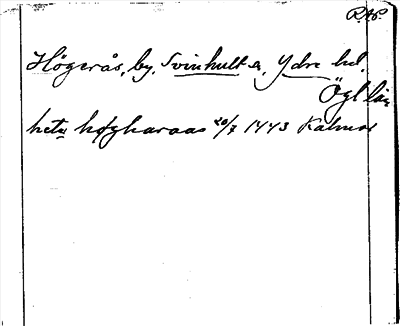 R.A.P.
Högerås, by, Svinhult sn, Ydre hd,
Ögl län
hetr høgharaas 20/7 1443 Kalmar